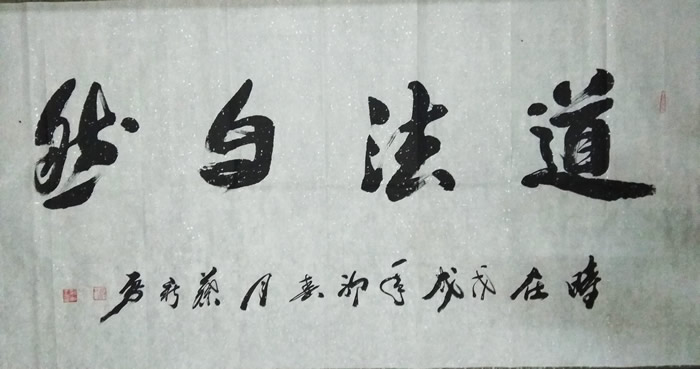 道法自然
時在戊戌年初春月蔡新